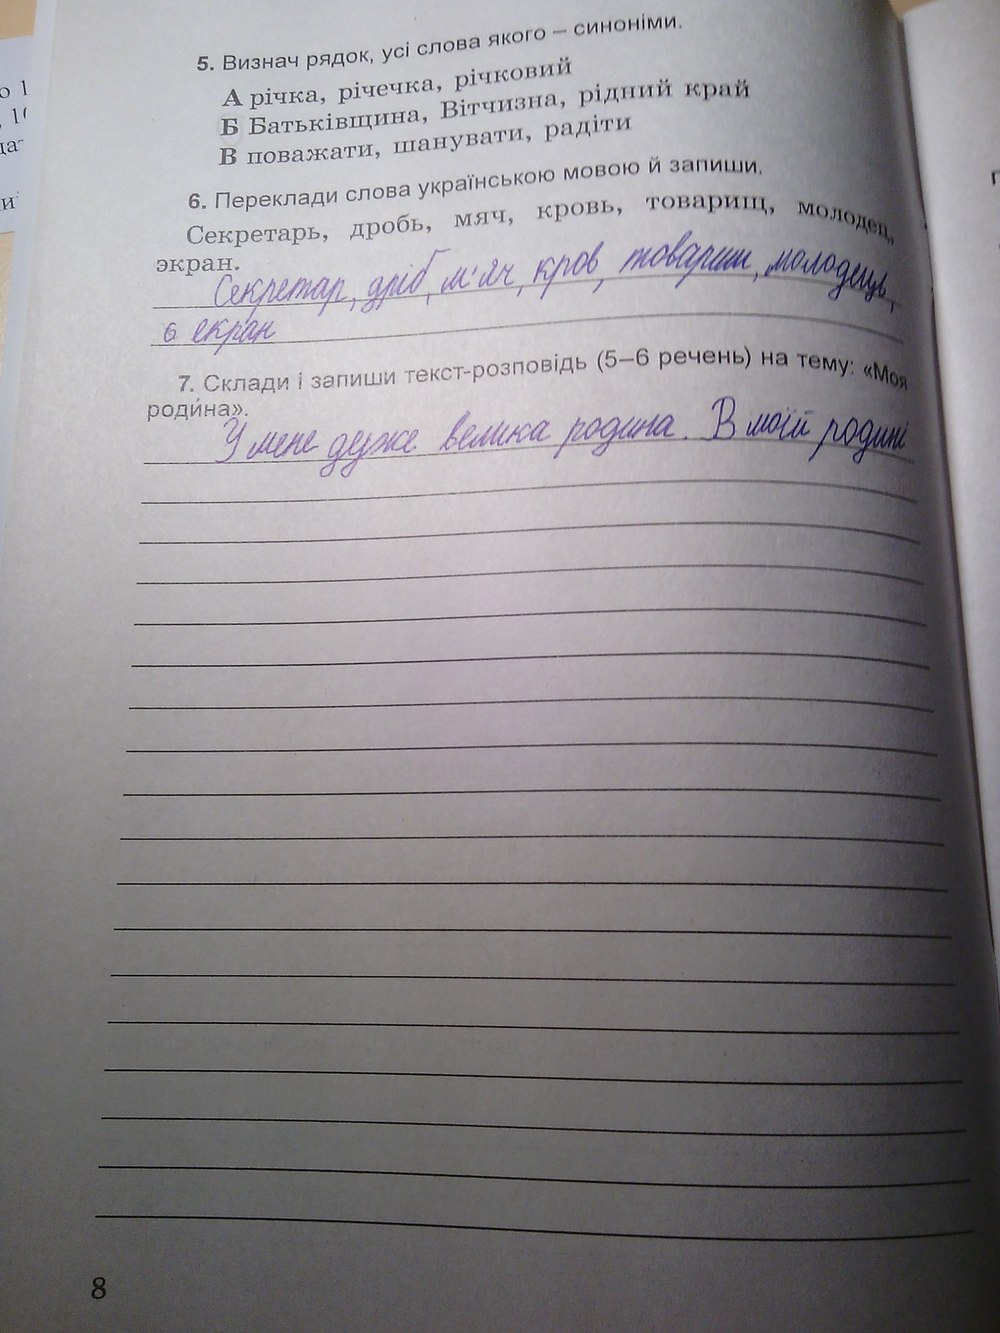 5. Визнач рядок, усі слова якого – синоніми.
А річка, річечка, річковий
Б Батьківщина, Вітчизна, рідний край
В поважати, шанувати, радіти
6. Переклади слова українською мовою й запиши.
Секретарь, дробь, мяч, кровь, товарищ, молодец,
экран.
Секретар, дріб, м'яч, кров, товариш, молодець,
екран
7. Склади і запиши текст-розповідь (5–6 речень) на тему: «Моя
роди́на».
У мене дуже велика родина. В моїй родині
8